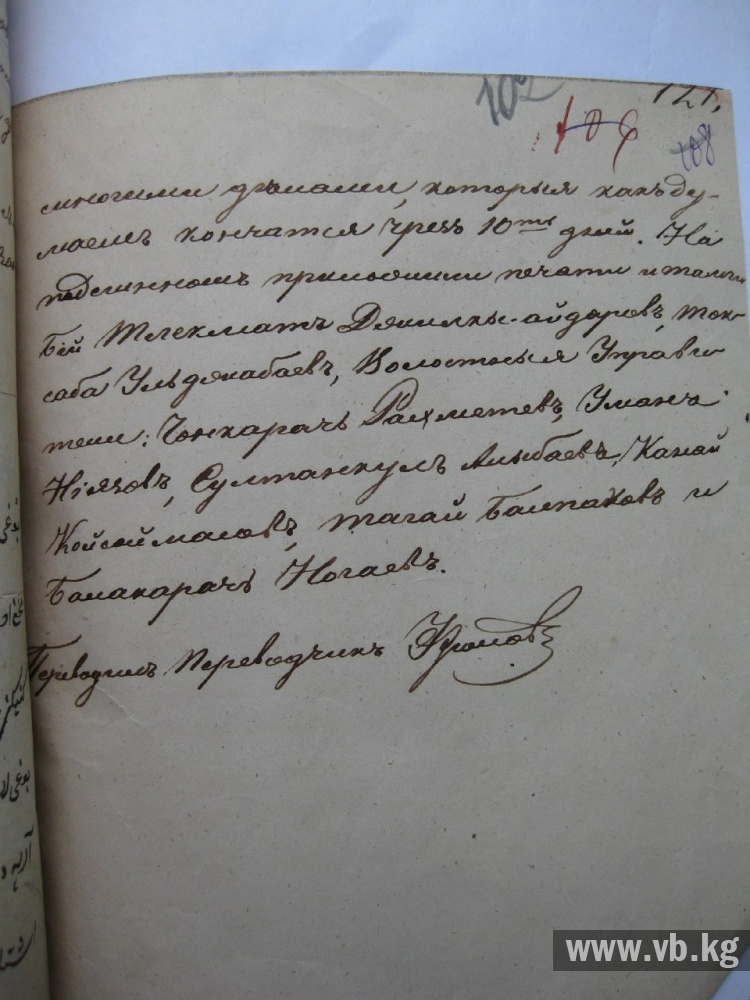 102
106
121,
108
многими дѣлами, которыя какъ ду-
маемъ кончатся чрезъ 10ть дней. На
подлинномъ приложили печати и тамги
Бій Тлекматъ Джилкы-айдаровъ, Ток-
саба Ульджабаевъ, Волостныя Управи-
тели: Чонкарачъ Рахметевъ, Уманъ
Ніязовъ, Султанкулъ Алыбаевъ, Канай
Койсоймасовъ, Тагай Балпаковъ и
Балакарачъ Ногаевъ.
Переводилъ Переводчикъ
www.vb.kg